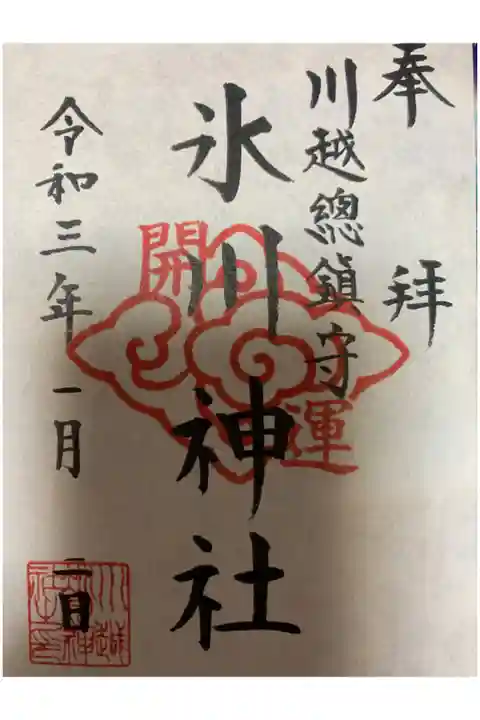 奉拝
川越總鎮守
氷川神社
開運
令和三年一月二日